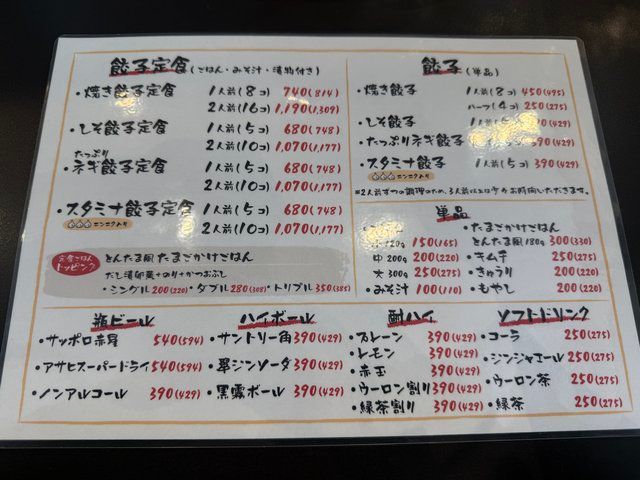 餃子定食(ごはん・みそ汁・漬物付き)
・焼き餃子定食 1人前(8コ) 740(814)
2人前(16コ) 1,190(1,309)
・しそ餃子定食 1人前(5コ) 680(748)
2人前(10コ) 1,070(1,177)
たっぷり
・ネギ餃子定食 1人前(5コ) 680(748)
2人前(10コ) 1,070(1,177)
・スタミナ餃子定食 1人前(5コ) 680(748)
ニンニク入り 2人前(10コ) 1,070(1,177)
定食ごはん
トッピング
とんたま風たまごかけごはん
だし漬卵黄+のり+かつおぶし
・シングル200(220)・ダブル280(308)・トリプル350(385)
餃子(単品)
・焼き餃子 1人前(8コ) 450(495)
ハーフ(4コ) 250(275)
・しそ餃子 1人前(5 390(429)
・たっぷりネギ餃子 390(429)
・スタミナ餃子 1人前(5コ) 390(429)
ニンニク入り
※2人前ずつの調理のため、3人前以上は少々お時間いただきます。
単品
120g 150(165)
中 200g 200(220)
大 300g 250(275)
・みそ汁 100(110)
・たまごかけごはん
とんたま風180g 300(330)
・キムチ 250(275)
・きゅうり 200(220)
・もやし 200(220)
瓶ビール
・サッポロ赤星 540(594)
・アサヒスーパードライ 540(594)
・ノンアルコール 390(429)
ハイボール
・サントリー角 390(429)
・翠ジンソーダ 390(429)
・黒霧ボール 390(429)
酎ハイ
・プレーン 390(429)
・レモン 390(429)
・赤玉 390(429)
・ウーロン割り 390(429)
・緑茶割り 390(429)
ソフトドリンク
・コーラ 250(275)
・ジンジャエール 250(275)
・ウーロン茶 250(275)
・緑茶 250(275)